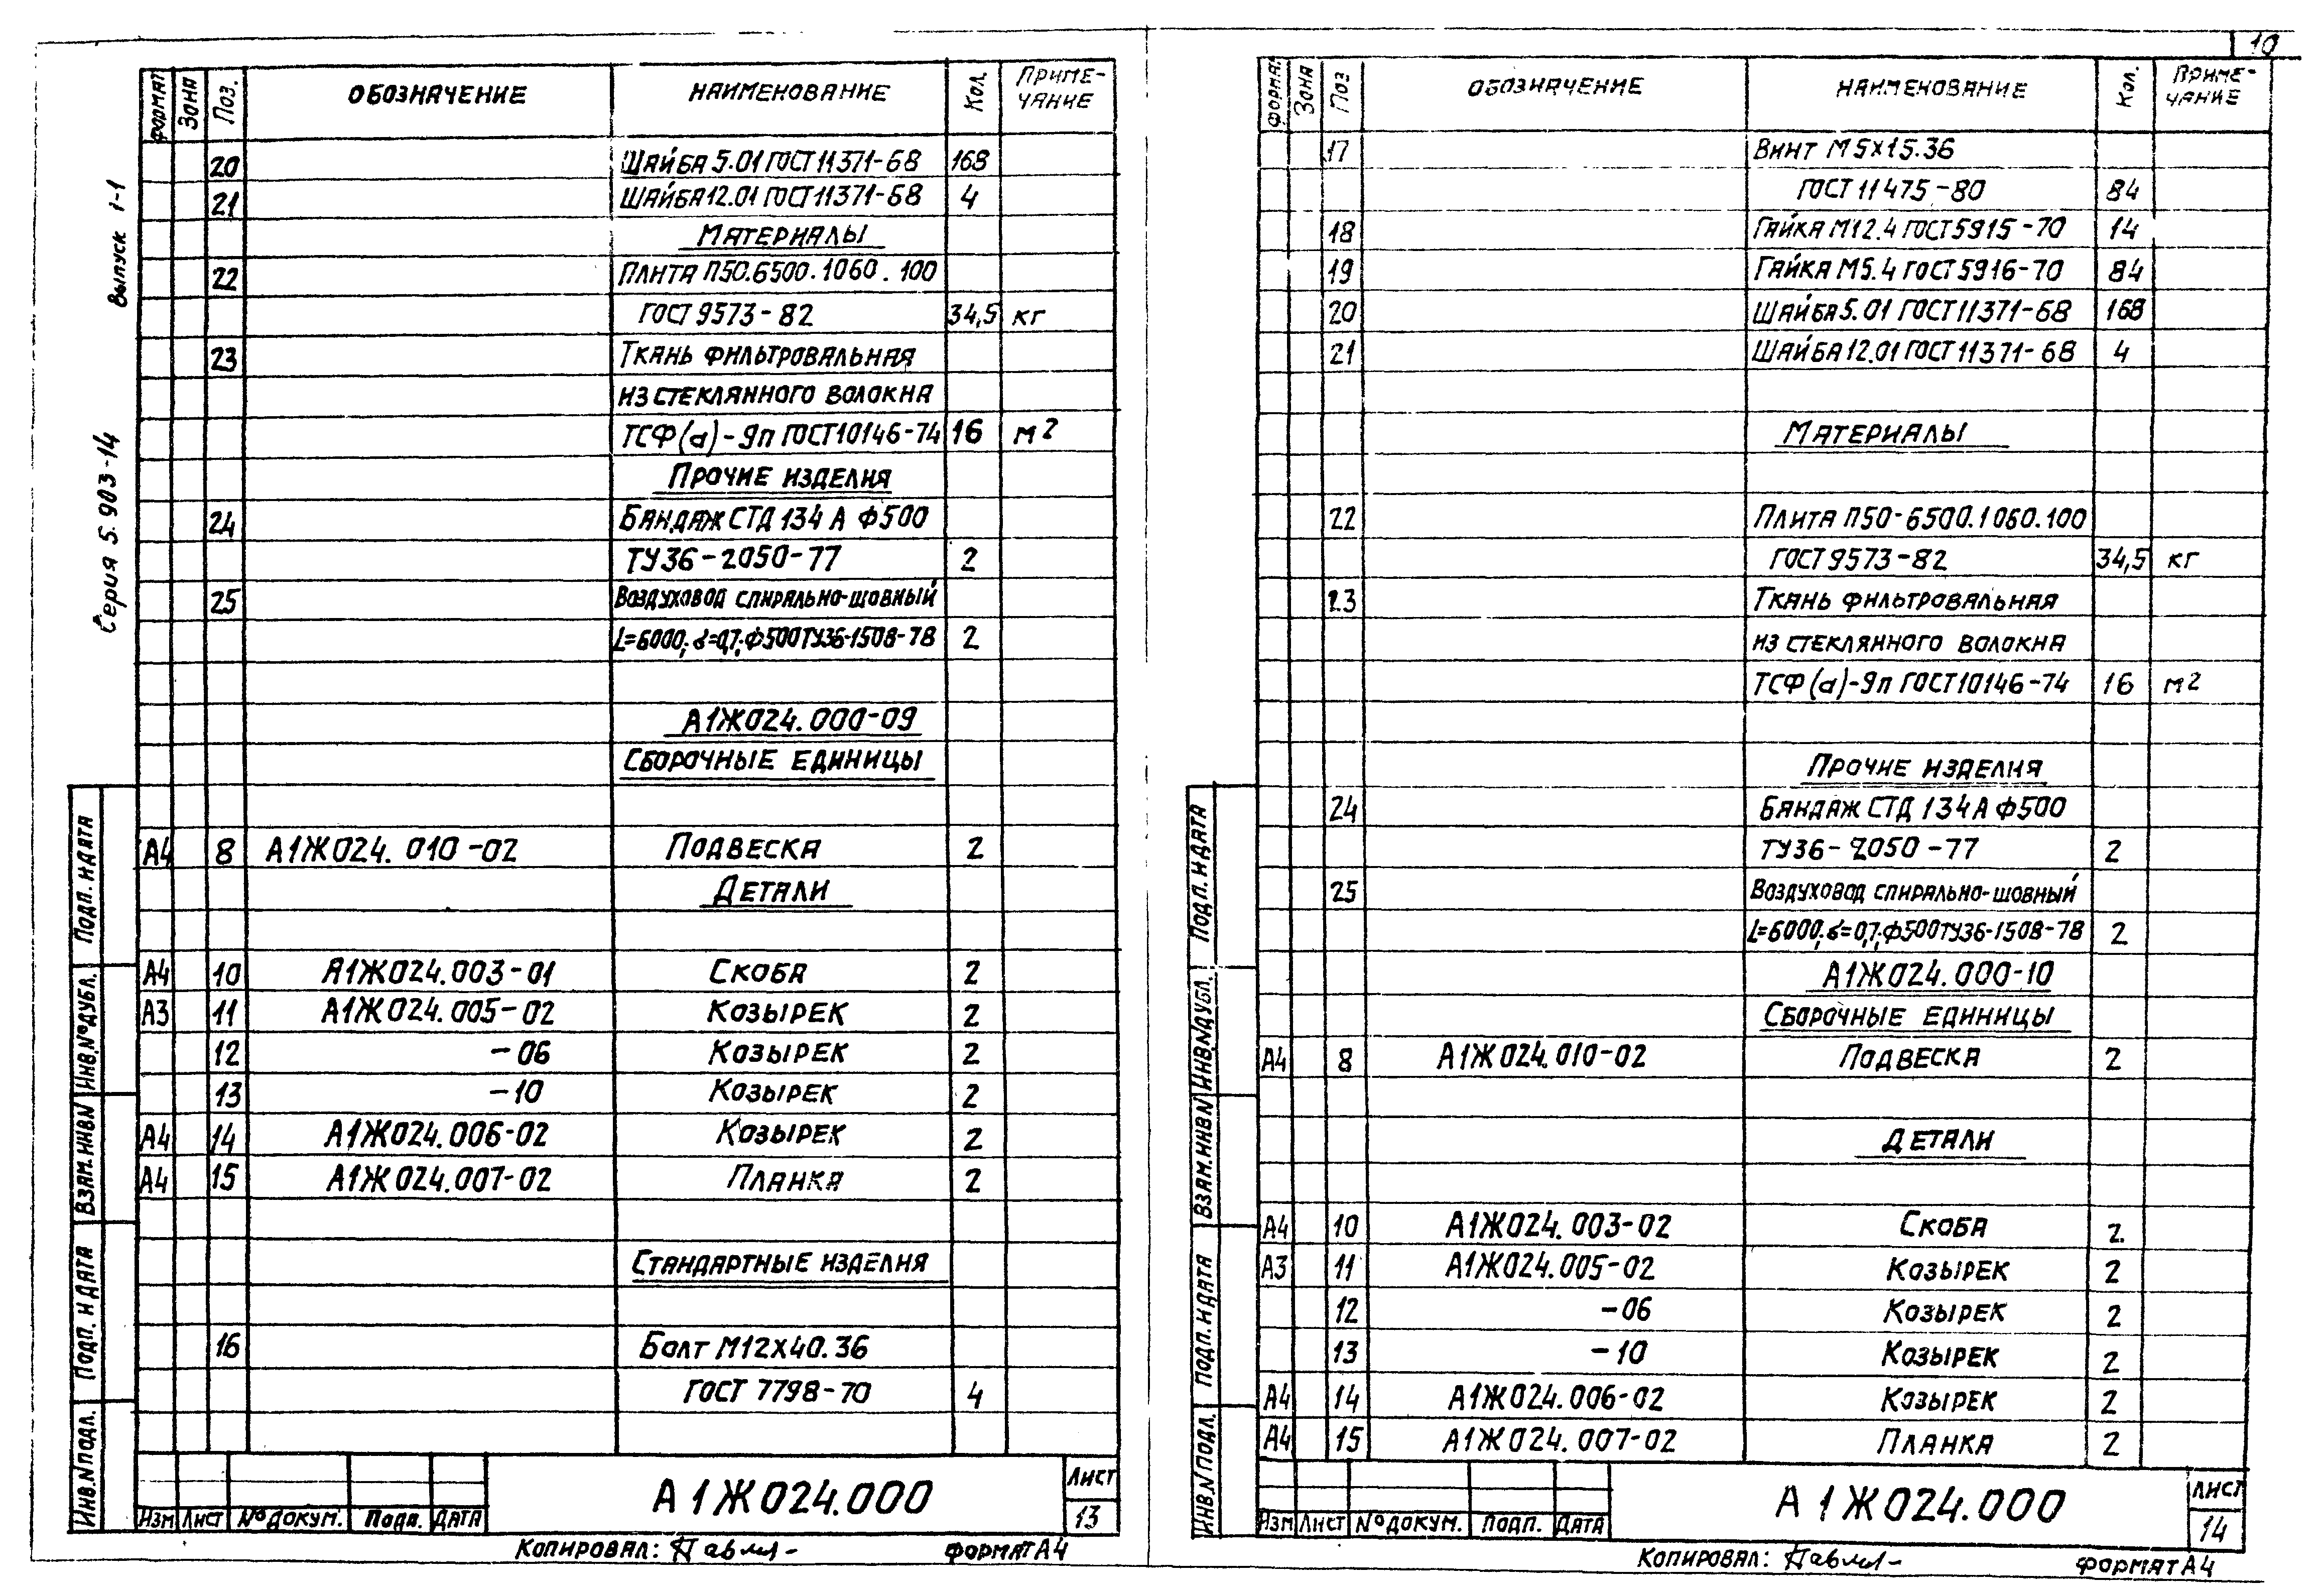 10
Серия 5.903-14 Выпуск 1-1
ФОРМАТ ЗОНА Поз. ОБОЗНАЧЕНИЕ НАИМЕНОВАНИЕ Кол. ПРИМЕ-
ЧАНИЕ
20 ШАЙБА 5.01 ГОСТ 11371-68 168
21 ШАЙБА 12.01 ГОСТ 11371-68 4
МАТЕРИАЛЫ
22 ПЛИТА П50.6500.1060.100
ГОСТ 9573-82 34,5 кг
23 ТКАНЬ ФИЛЬТРОВАЛЬНАЯ
ИЗ СТЕКЛЯННОГО ВОЛОКНА
ТСФ(а)-9п ГОСТ 10146-74 16 м2
ПРОЧИЕ ИЗДЕЛИЯ
24 БАНДАЖ СТД 134 А Ф500
ТУ36-2050-77 2
25 ВОЗДУХОВОД СПИРАЛЬНО-ШОВНЫЙ
L=6000; б=0,7; Ф500 ТУ36-1508-78 2
А1Ж024.000-09
СБОРОЧНЫЕ ЕДИНИЦЫ
А4 8 А1Ж024.010-02 ПОДВЕСКА 2
ДЕТАЛИ
А4 10 А1Ж024.003-01 СКОБА 2
А3 11 А1Ж024.005-02 КОЗЫРЕК 2
12 -06 КОЗЫРЕК 2
13 -10 КОЗЫРЕК 2
А4 14 А1Ж024.006-02 КОЗЫРЕК 2
А4 15 А1Ж024.007-02 ПЛАНКА 2
СТАНДАРТНЫЕ ИЗДЕЛИЯ
16 БОЛТ М12Х40.36
ГОСТ 7798-70 4
ИНВ.N ПОДЛ. ПОДП. И ДАТА ВЗАМ.ИНВ.N ИНВ.N°ДУБЛ. ПОДП. И ДАТА
ИЗМ ЛИСТ N° ДОКУМ. ПОДП. ДАТА
А1Ж024.000
ЛИСТ
13
КОПИРОВАЛ: Павл- ФОРМАТ А4
ФОРМАТ ЗОНА Поз ОБОЗНАЧЕНИЕ НАИМЕНОВАНИЕ Кол. ПРИМЕ-
ЧАНИЕ
17 ВИНТ М5Х15.36
ГОСТ 11475-80 84
18 ГАЙКА М12.4 ГОСТ 5915-70 14
19 ГАЙКА М5.4 ГОСТ 5916-70 84
20 ШАЙБА 5.01 ГОСТ 11371-68 168
21 ШАЙБА 12.01 ГОСТ 11371-68 4
МАТЕРИАЛЫ
22 ПЛИТА П50-6500.1060.100
ГОСТ 9573-82 34,5 кг
23 ТКАНЬ ФИЛЬТРОВАЛЬНАЯ
ИЗ СТЕКЛЯННОГО ВОЛОКНА
ТСФ(а)-9п ГОСТ 10146-74 16 м2
ПРОЧИЕ ИЗДЕЛИЯ
24 БАНДАЖ СТД 134А Ф500
ТУ36-2050-77 2
25 ВОЗДУХОВОД СПИРАЛЬНО-ШОВНЫЙ
L=6000; б=0,7; Ф500 ТУ36-1508-78 2
А1Ж024.000-10
СБОРОЧНЫЕ ЕДИНИЦЫ
А4 8 А1Ж024.010-02 ПОДВЕСКА 2
ДЕТАЛИ
А4 10 А1Ж024.003-02 СКОБА 2.
А3 11 А1Ж024.005-02 КОЗЫРЕК 2
12 -06 КОЗЫРЕК 2
13 -10 КОЗЫРЕК 2
А4 14 А1Ж024.006-02 КОЗЫРЕК 2
А4 15 А1Ж024.007-02 ПЛАНКА 2
ИНВ.N ПОДЛ. ПОДП. И ДАТА ВЗАМ.ИНВ.N ИНВ.N ДУБЛ. ПОДП. И ДАТА
ИЗМ ЛИСТ N° ДОКУМ. ПОДП. ДАТА
А1Ж024.000
ЛИСТ
14
КОПИРОВАЛ: Павл- ФОРМАТ А4